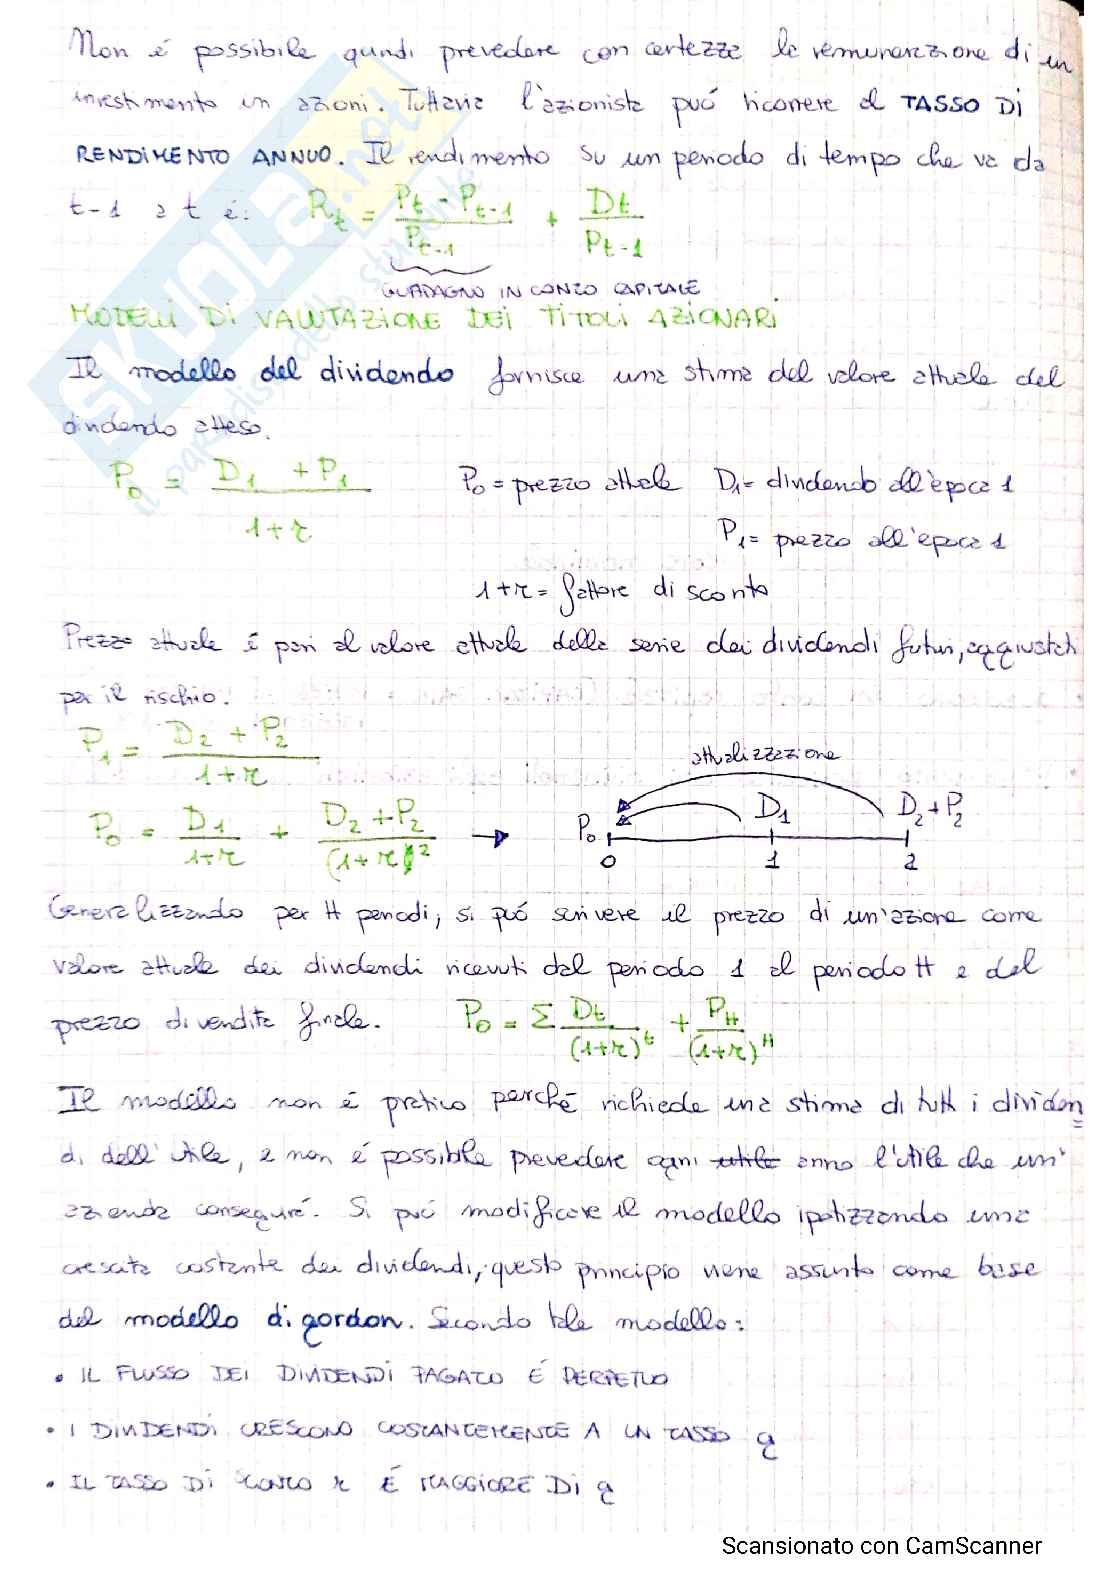 Non é possibile quindi prevedere con certezza la remunerazione di un
investimento in azioni. Tuttavia l'azionista puó ricorrere al TASSO DI
RENDIMENTO ANNUO. Il rendimento su un periodo di tempo che va da
t-1 a t é: Rt = Pt - Pt-1 / Pt-1 + Dt / Pt-1
GUADAGNO IN CONTO CAPITALE
MODELLI DI VALUTAZIONE DEI TITOLI AZIONARI
Il modello del dividendo fornisce una stima del valore attuale del
dividendo atteso.
P0 = D1 + P1 / 1+r P0 = prezzo attuale D1 = dividendo all'epoca 1
P1 = prezzo all'epoca 1
1+r = fattore di sconto
Prezzo attuale é pari al valore attuale della serie dei dividendi futuri, aggiustati
per il rischio.
P1 = D2 + P2 / 1+r
attualizzazione
P0 = D1 / 1+r + D2 + P2 / (1+r)² → P0 D1 D2 + P2
0 1 2
Generalizzando per H periodi, si puó scrivere il prezzo di un'azione come
valore attuale dei dividendi ricevuti dal periodo 1 al periodo H e del
prezzo di vendita finale. P0 = Σ Dt / (1+r)^t + PH / (1+r)^H
Il modello non é pratico perché richiede una stima di tutti i dividen
di dell'utile, e non é possibile prevedere ogni utile anno l'utile che un'
azienda conseguirá. Si puó modificare il modello ipotizzando una
crescita costante dei dividendi, questo principio viene assunto come base
del modello di gordon. Secondo tale modello:
• IL FLUSSO DEI DIVIDENDI PAGATO É PERPETUO
• I DIVIDENDI CRESCONO COSTANTEMENTE A UN TASSO g
• IL TASSO DI SCONTO r É MAGGIORE DI g
SKUOLA.net
il paradiso dello studente
Scansionato con CamScanner